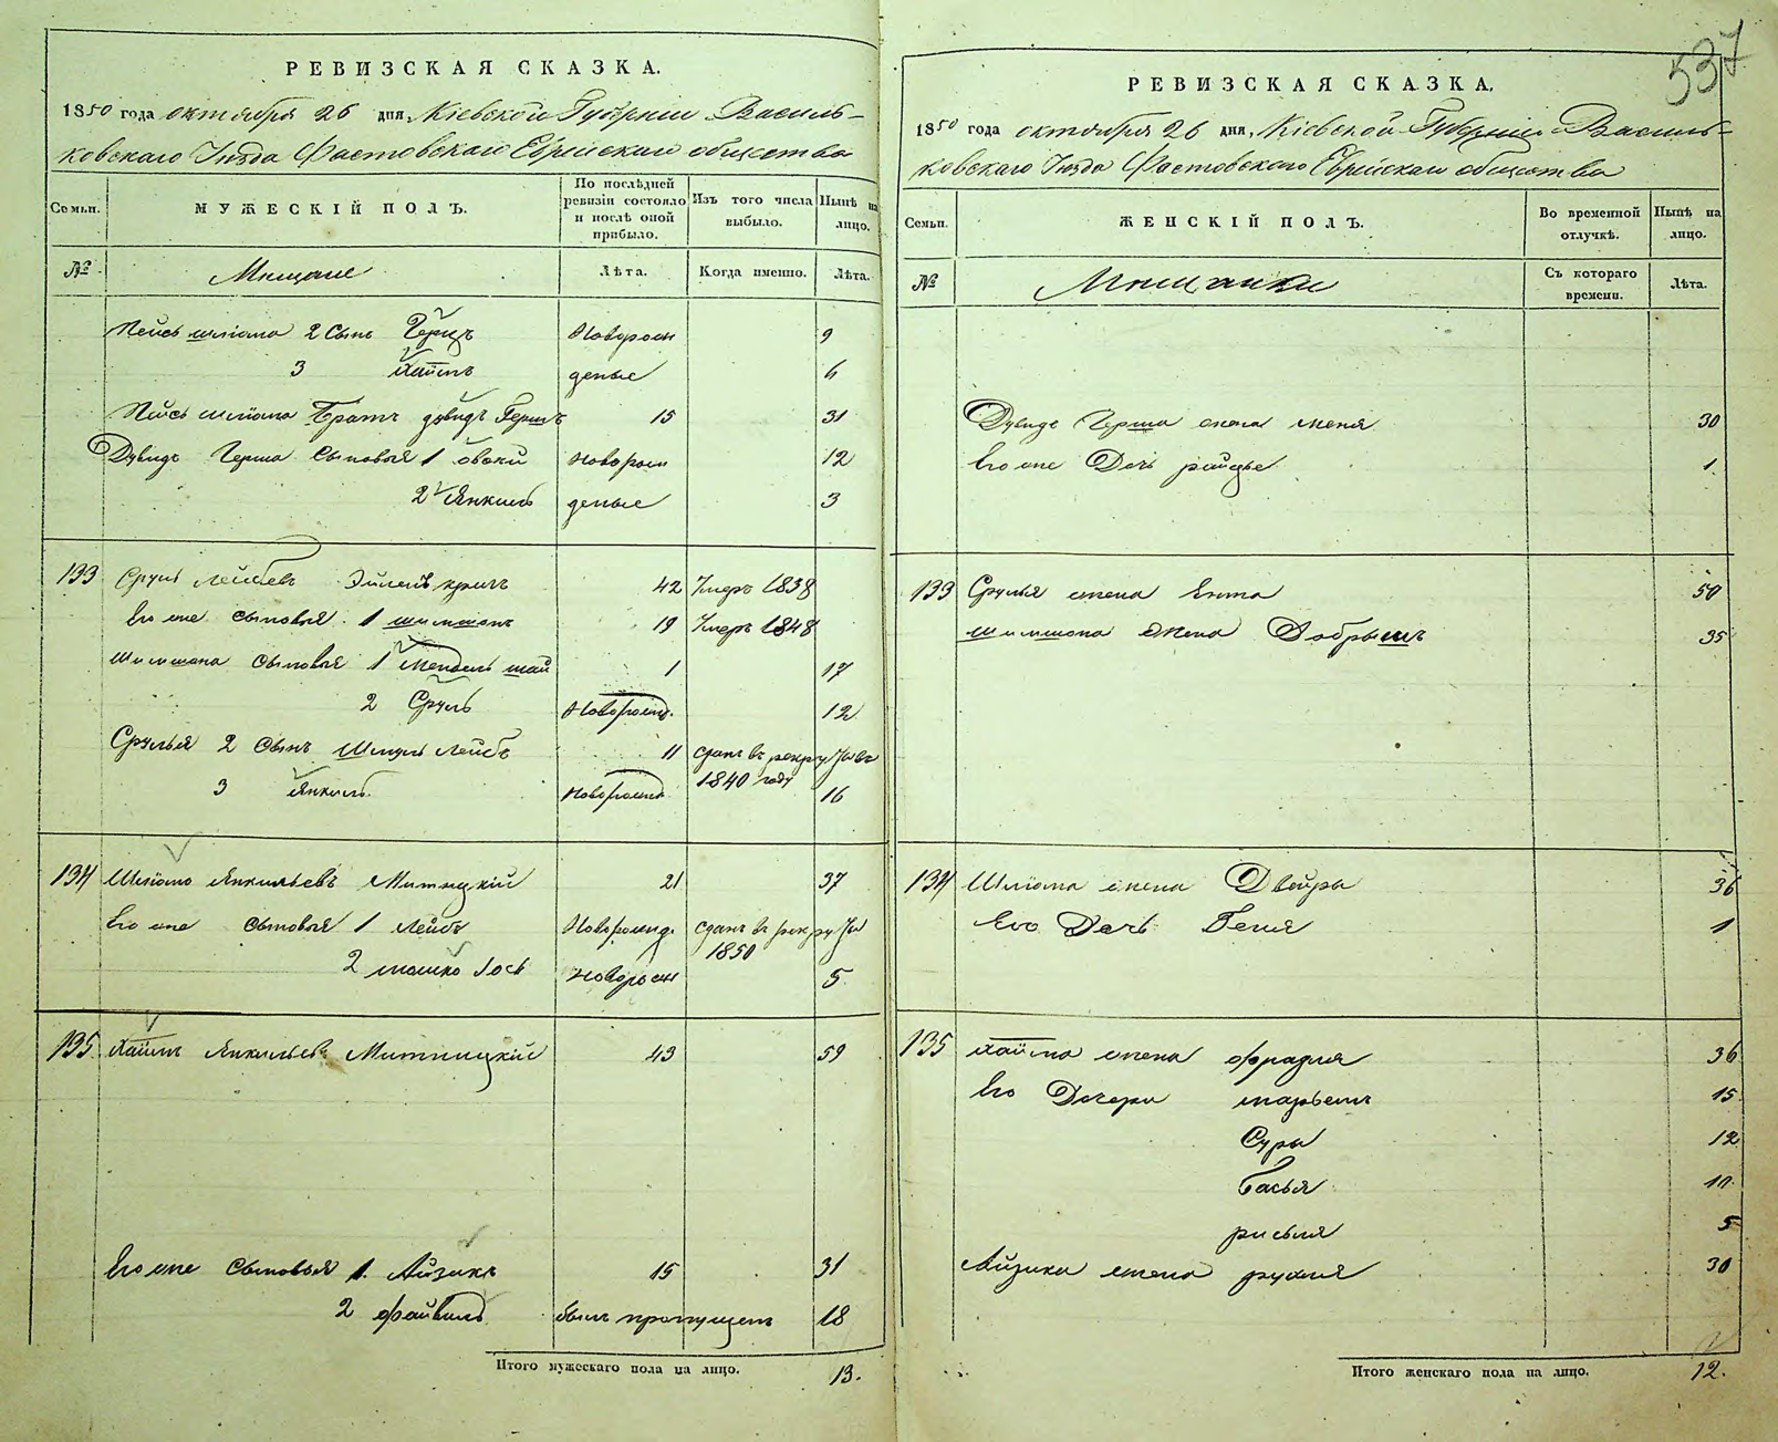 537
РЕВИЗСКАЯ СКАЗКА.
1850 года октября 26 дня, Кіевской Губерніи Василь-
ковскаго Уѣзда Фастовскаго Еврейскаго общества
Семьи.
МУЖЕСКІЙ ПОЛЪ.
По послѣдней ревизіи состояло и послѣ оной прибыло.
Изъ того числа выбыло.
Нынѣ на лицо.
№
Мещане
Лѣта.
Когда именно.
Лѣта.
Пейсь шліома 2 Сынъ Герцъ Новорож 9
3 Хаимъ деные 6
Пейсь шліома Братъ дувидъ Гершъ 15 31
Дувидъ Герша Сыновья 1 Новорож 12
2 Янкиль деные 3
133 Сруль Лейбовъ 42 Умеръ 1838
Его же сыновья 1 шимшонъ 19 Умеръ 1848
Шимшона Сыновья 1 Мендель 1 17
2 Сруль Новорожд. 12
Срулья 2 Сынъ Шмуль Лейбъ 11 сданъ въ рекруты въ
1840 году
3 Янкиль Новорожд 16
134 Шліома Янкильевъ Митницкій 21 37
Его же Сыновья 1 Лейбъ Новорожд. сданъ в рекруты
1850
2 мошко Іось Новорож 5
135 Хаимъ Янкильевъ Митницкій 43 59
Его же Сыновья 1. Айзикъ 15 31
2 Файвиль былъ пропущенъ 18
Итого мужескаго пола на лицо. 13.
РЕВИЗСКАЯ СКАЗКА.
1850 года октября 26 дня, Кіевской Губерніи Василь-
ковскаго Уѣзда Фастовскаго Еврейскаго общества
Семьи.
ЖЕНСКІЙ ПОЛЪ.
Во временной отлучкѣ.
Нынѣ на лицо.
№
Мещанки
Съ котораго времени.
Лѣта.
Дувида Герша жена 30
Его же Дочь рейзье 1.
133 Срулья жена Ента 50
шимшона жена Добрышъ 35
134 Шліома жена Двойра 36
Его Дочь Беня 1
135 Хаима жена Фрадля 36
Его Дочери марьемъ 15
Сура 12
Басья 10
рисьля 5
Айзика жена рухля 30
Итого женскаго пола на лицо. 12.